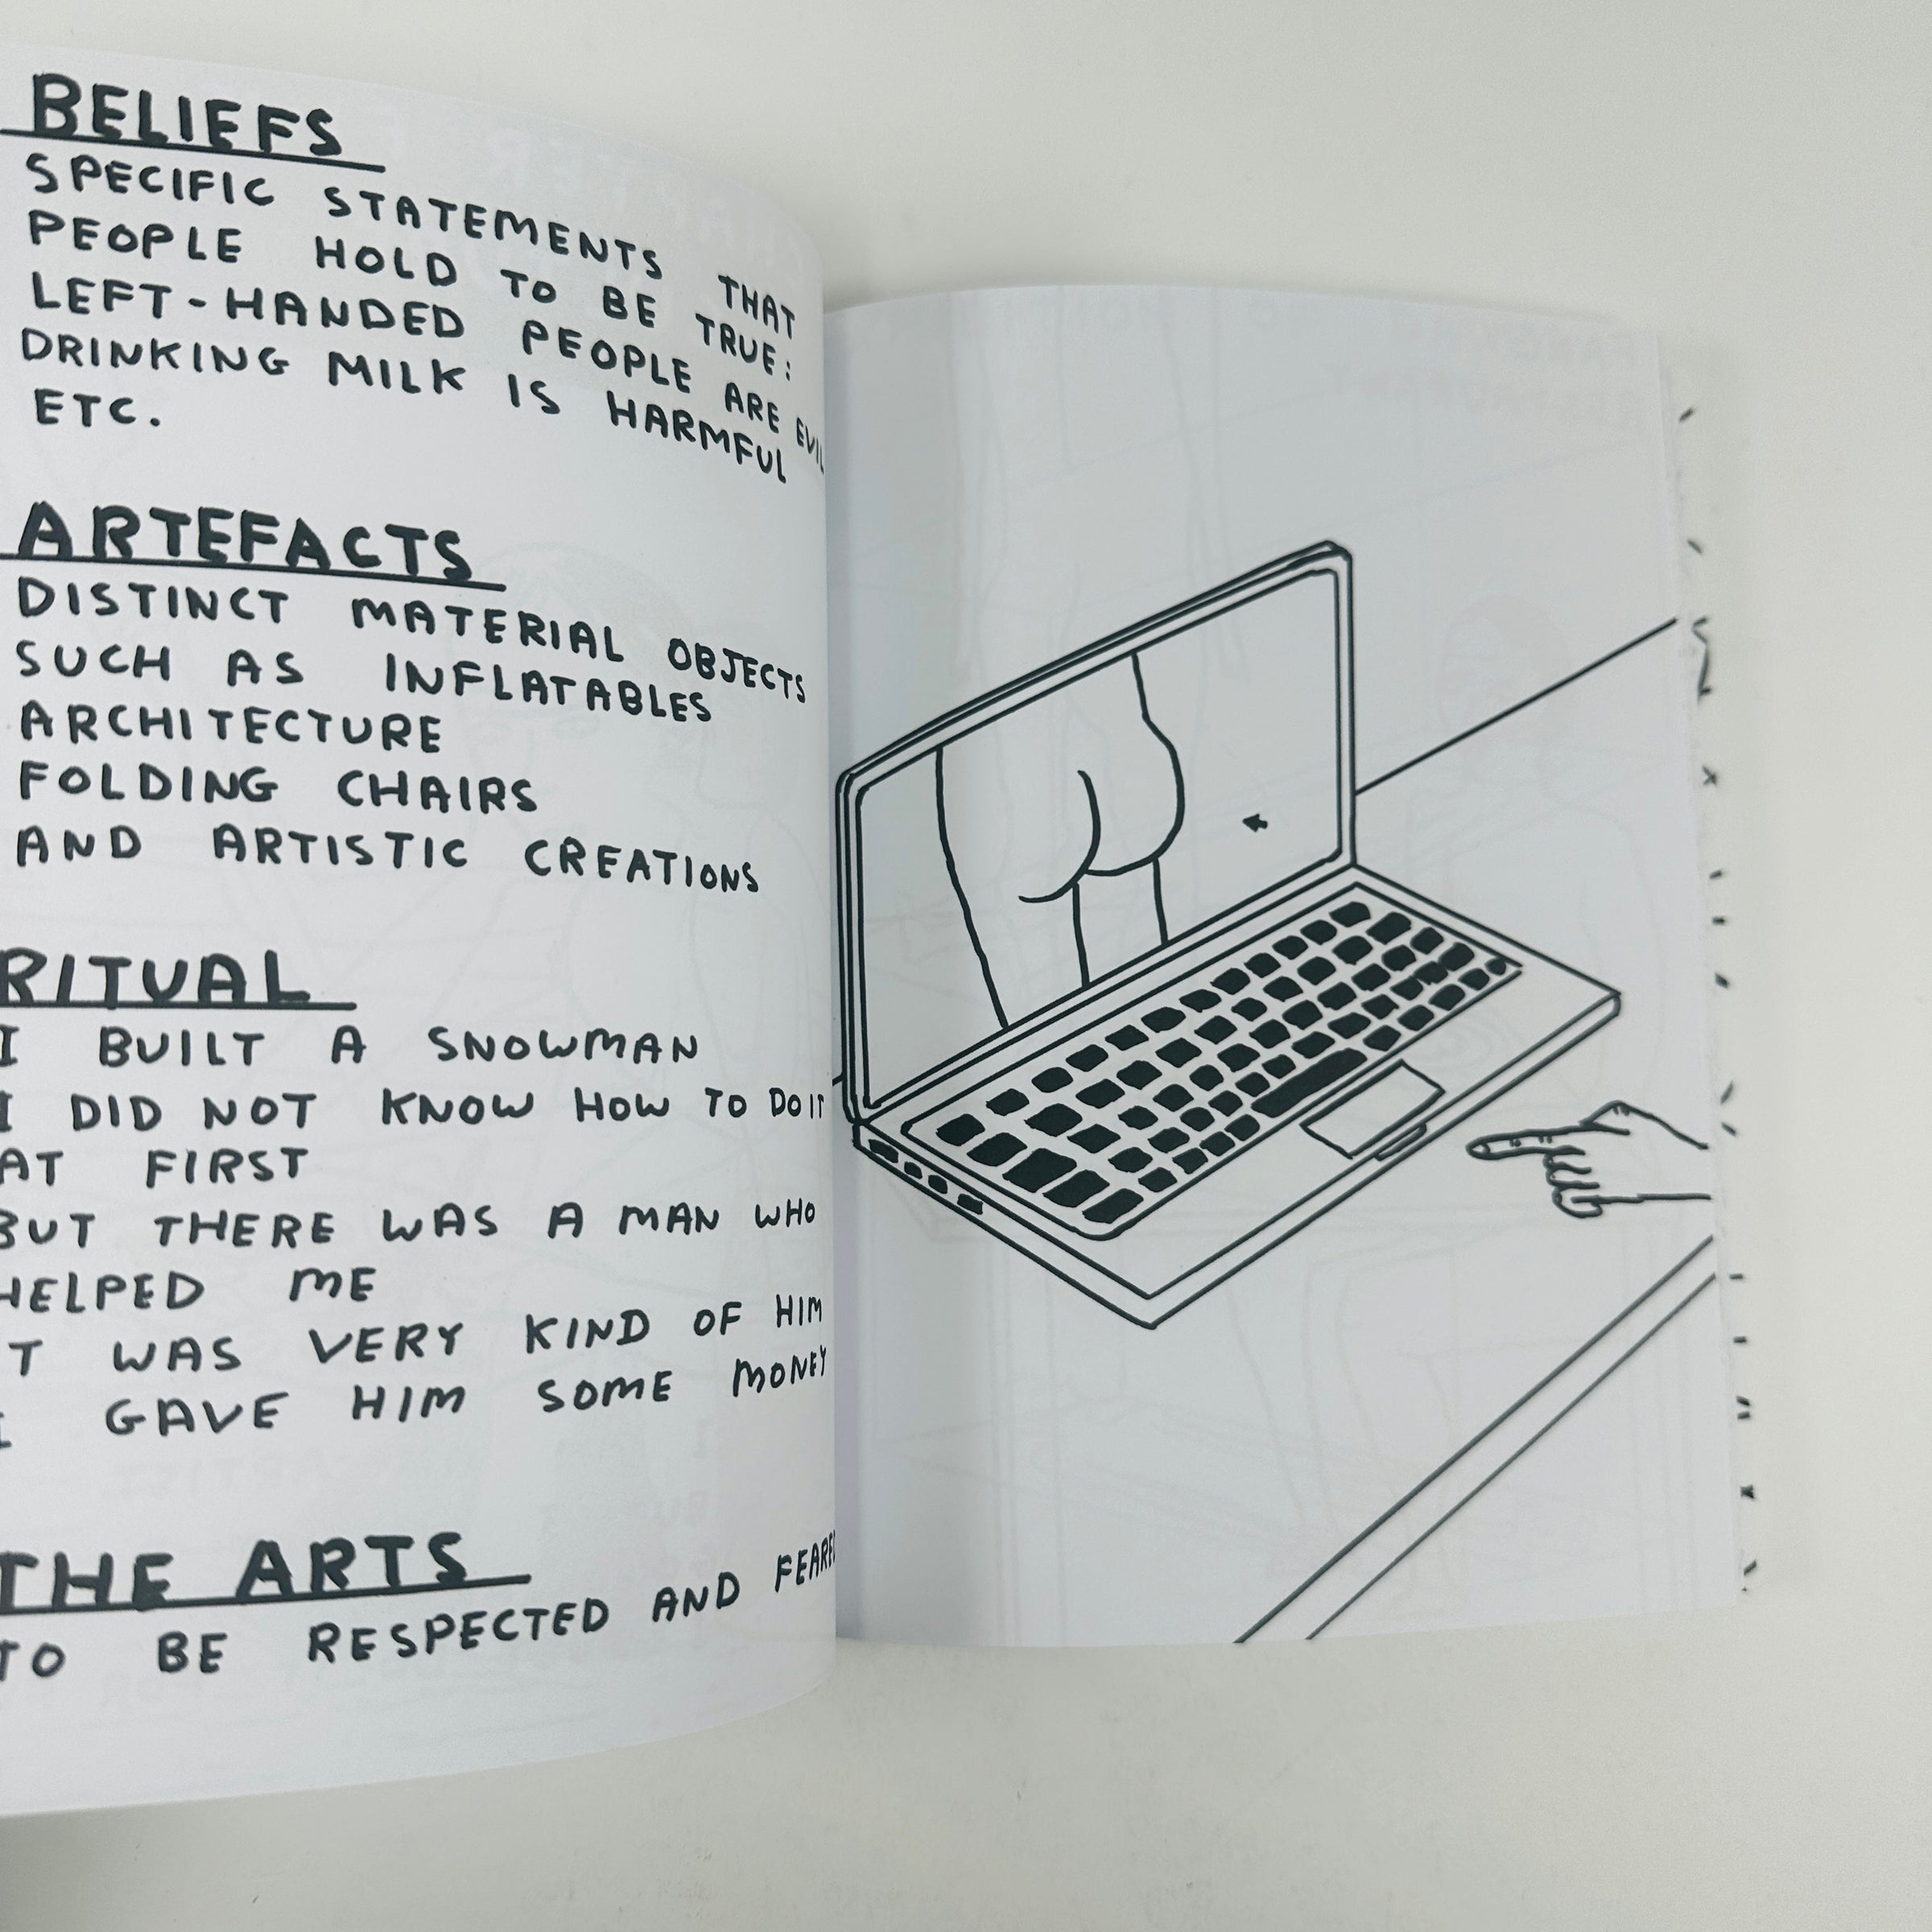 BELIEFS
SPECIFIC STATEMENTS THAT
PEOPLE HOLD TO BE TRUE:
LEFT-HANDED PEOPLE ARE EVIL
DRINKING MILK IS HARMFUL
ETC.
ARTEFACTS
DISTINCT MATERIAL OBJECTS
SUCH AS INFLATABLES
ARCHITECTURE
FOLDING CHAIRS
AND ARTISTIC CREATIONS
RITUAL
I BUILT A SNOWMAN
I DID NOT KNOW HOW TO DO IT
AT FIRST
BUT THERE WAS A MAN WHO
HELPED ME
IT WAS VERY KIND OF HIM
I GAVE HIM SOME MONEY
THE ARTS
TO BE RESPECTED AND FEARED